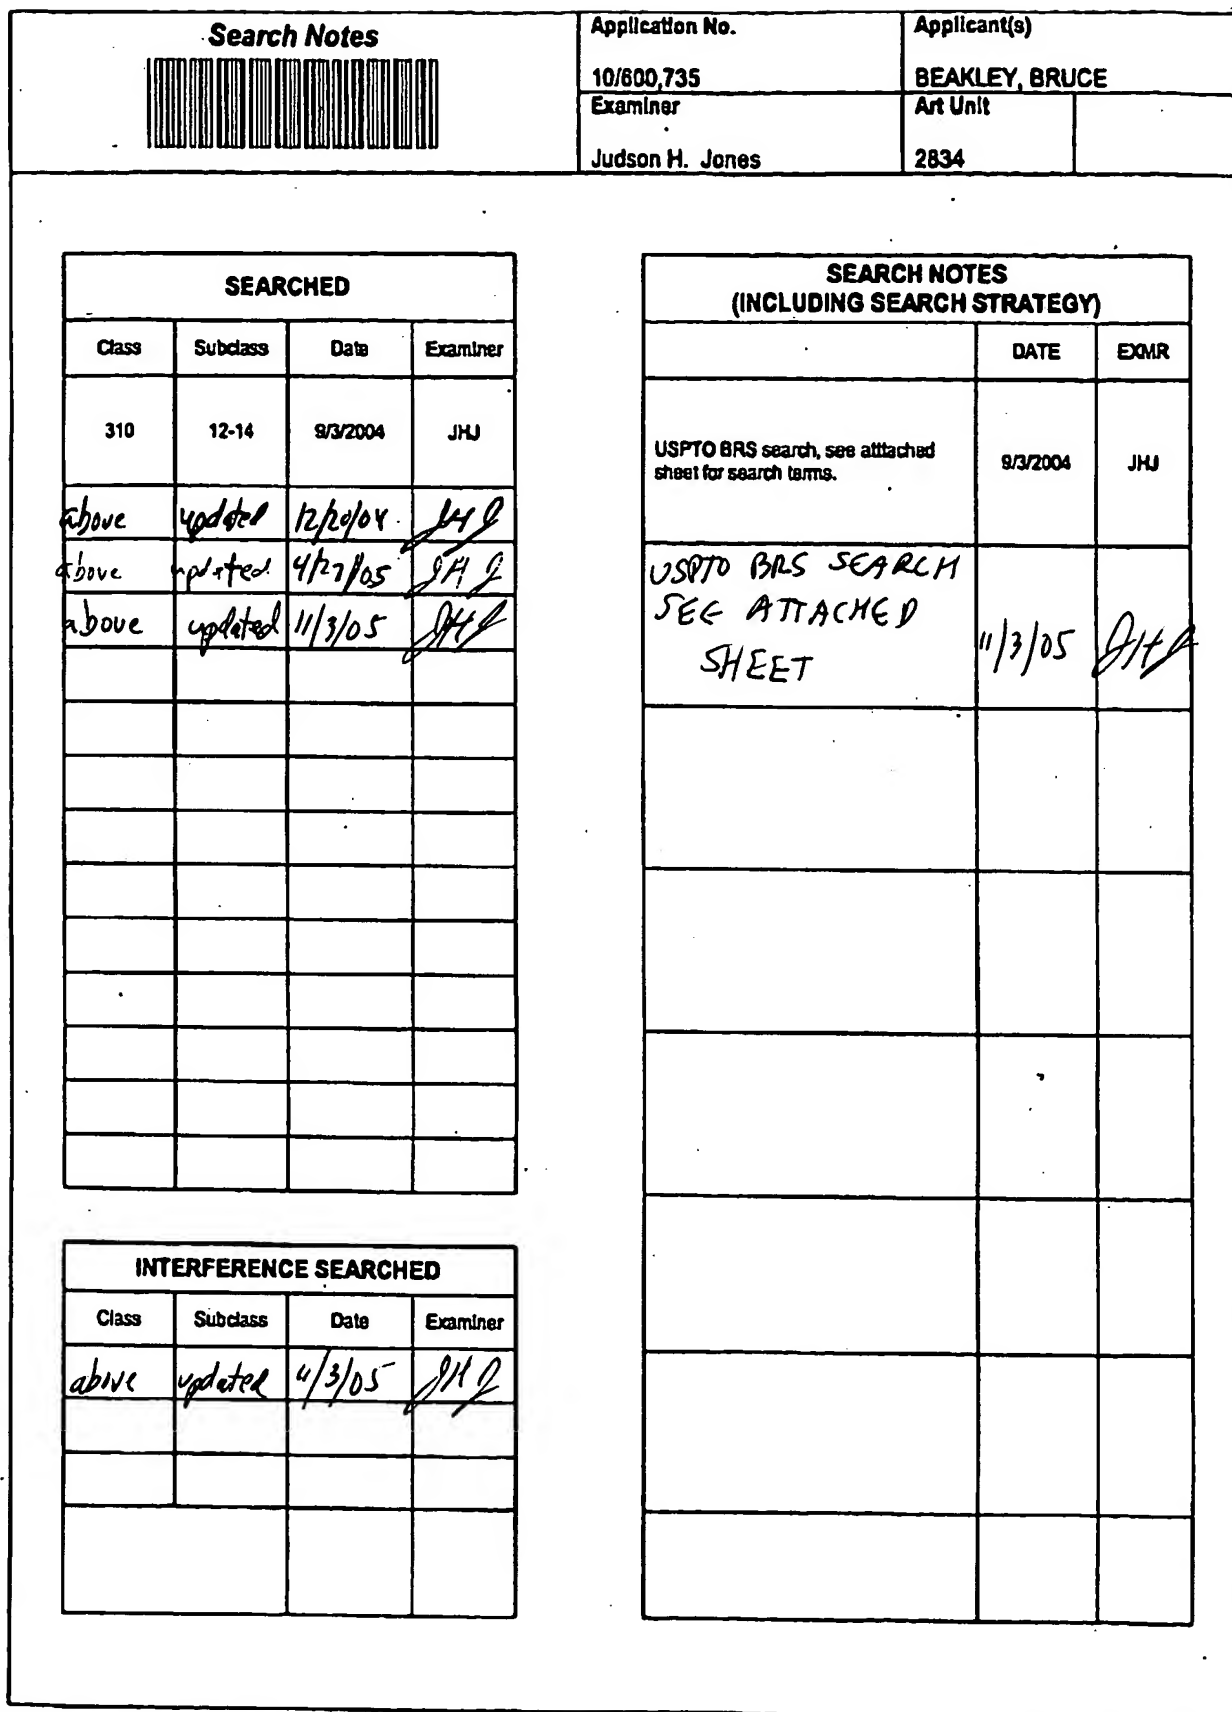 Search Notes
Application No.
10/600,735
Applicant(s)
BEAKLEY, BRUCE
Examiner
Judson H. Jones
Art Unit
2834
SEARCHED
Class Subclass Date Examiner
310 12-14 9/3/2004 JHJ
above updated 12/20/04 JHJ
above updated 4/27/05 JHJ
above updated 11/3/05 JHJ
INTERFERENCE SEARCHED
Class Subclass Date Examiner
above updated 11/3/05 JHJ
SEARCH NOTES
(INCLUDING SEARCH STRATEGY)
DATE EXMR
USPTO BRS search, see atttached
sheet for search terms.
9/3/2004 JHJ
USPTO BRS SEARCH
SEE ATTACHED
SHEET
11/3/05 JHJ